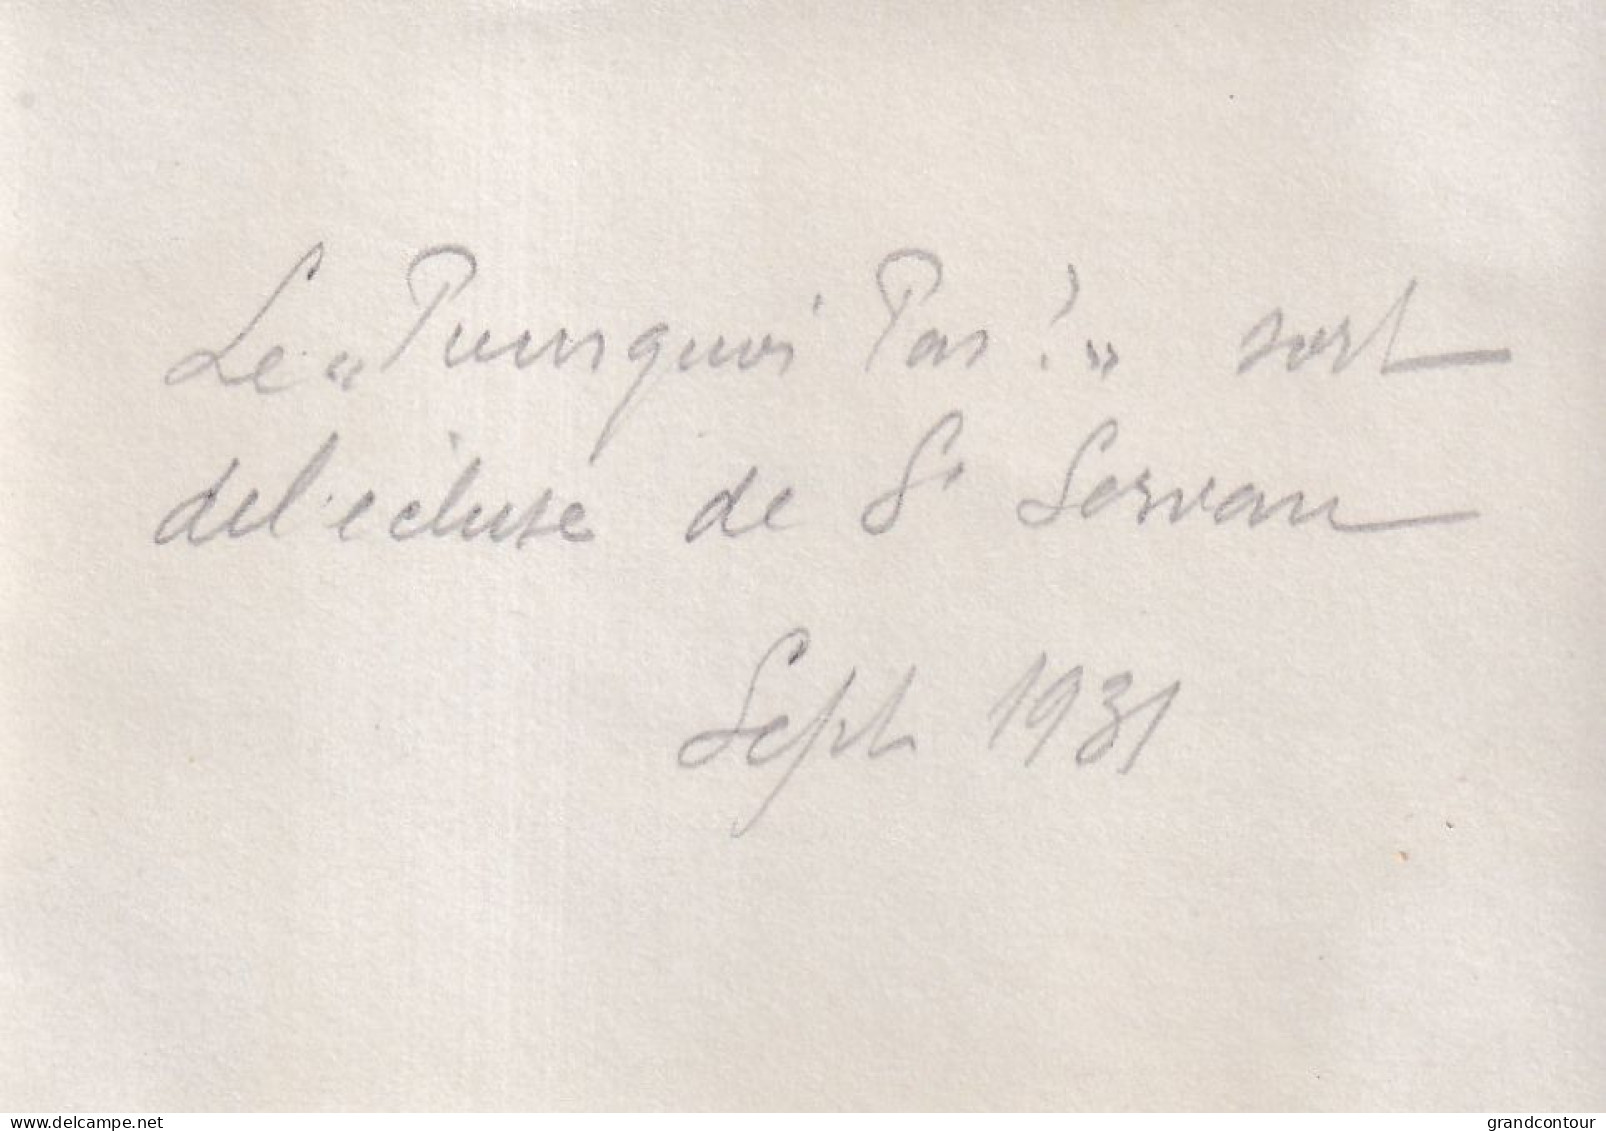 Le « Pourquoi Pas ? » sort
de l'écluse de St Servan
Sept 1931
delcampe.net
grandcontour